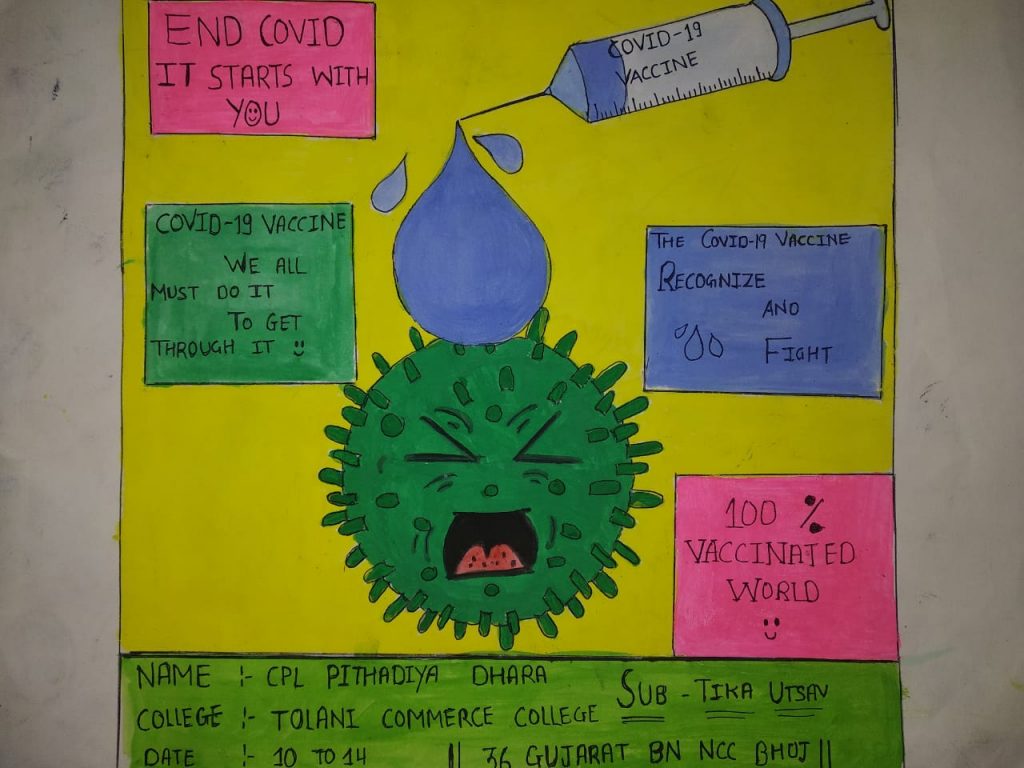 END COVID
IT STARTS WITH
YOU
COVID-19
VACCINE
COVID-19 VACCINE
WE ALL
MUST DO IT
TO GET
THROUGH IT
THE COVID-19 VACCINE
RECOGNIZE
AND
FIGHT
100 %
VACCINATED
WORLD
NAME :- CPL PITHADIYA DHARA
SUB - TIKA UTSAV
COLLEGE :- TOLANI COMMERCE COLLEGE
DATE :- 10 TO 14 || 36 GUJARAT BN NCC BHUJ ||